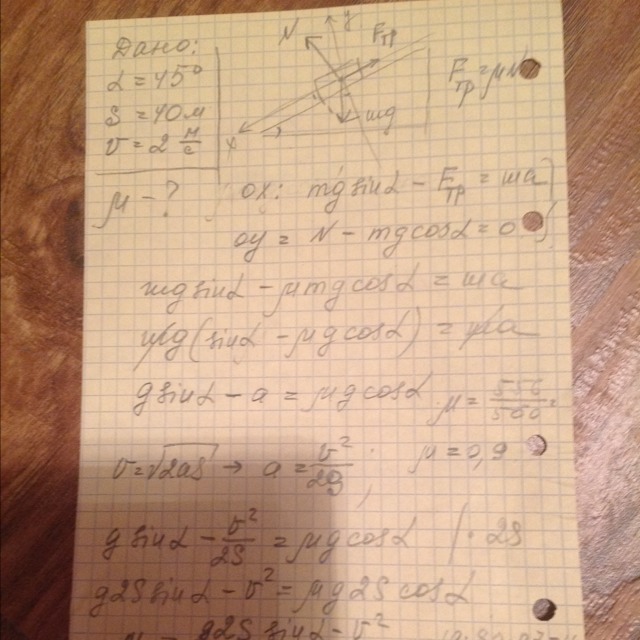 Дано:
α = 45°
S = 40 м
v = 2 м/с
μ - ?
N y Fтр
mg
x
Fтр = μN
ox: mg sinα - Fтр = ma
oy = N - mg cosα = 0
mg sinα - μmg cosα = ma
mg (sinα - μg cosα) = ma
g sinα - a = μg cosα
μ =
v = √2aS → a = v²/2g
μ = 0,9
g sinα - v²/2S = μg cosα | · 2S
g2S sinα - v² = μg2S cosα
g2S sinα - v²